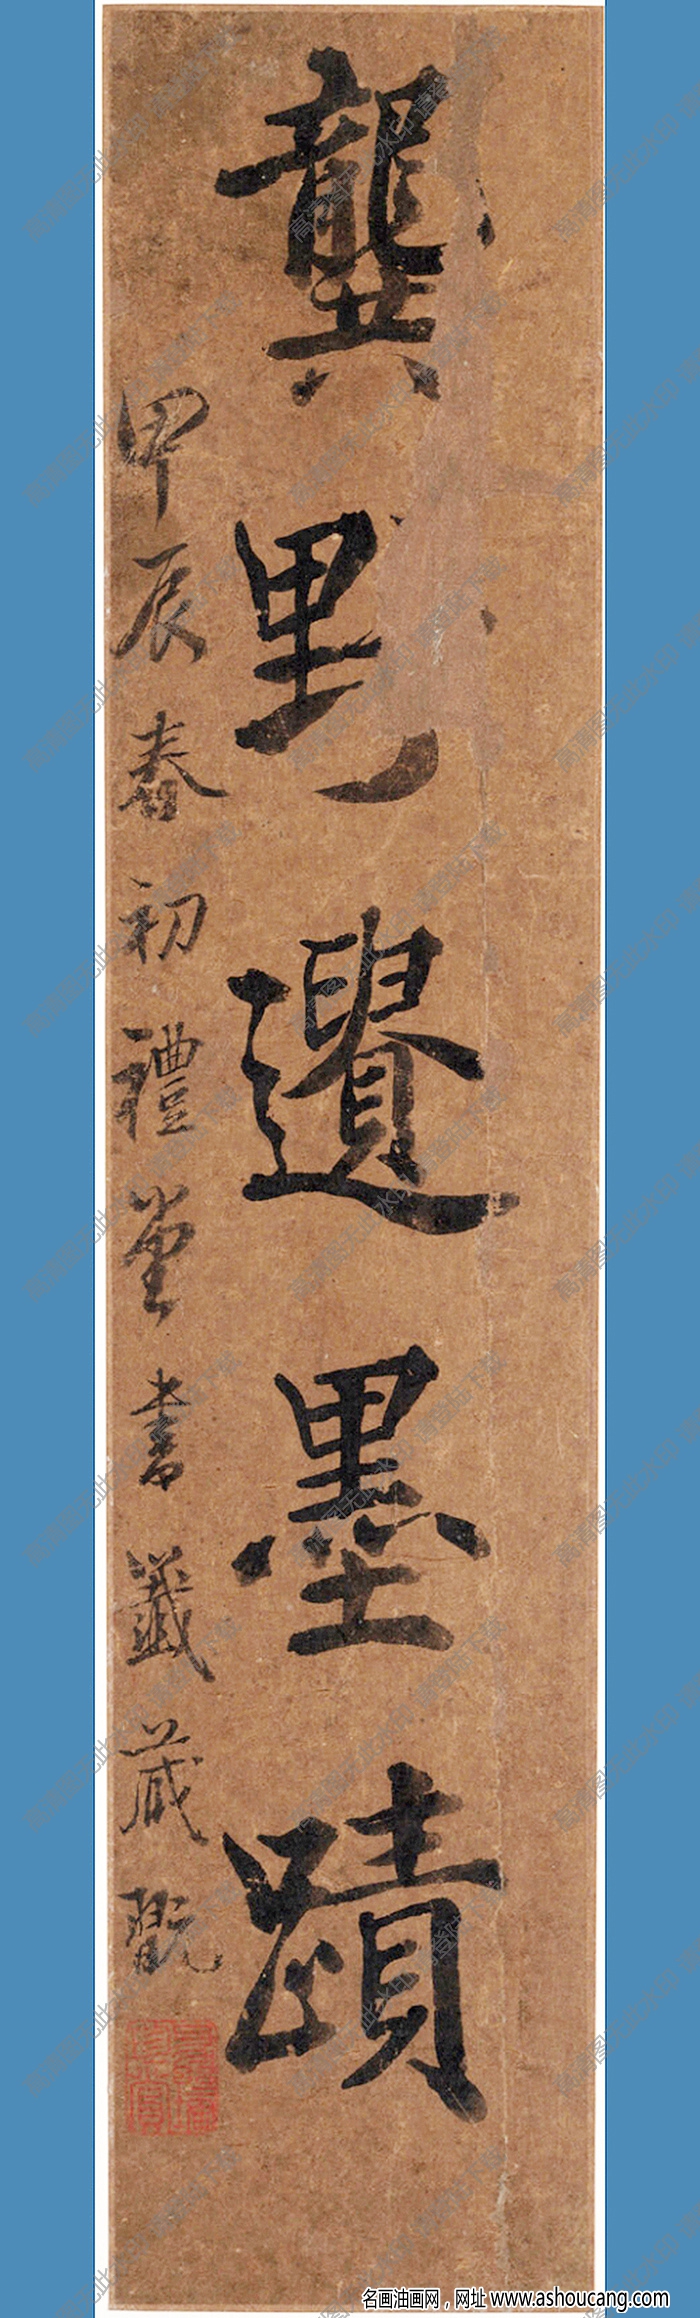 龔野遺墨蹟
甲辰春初禮堂書籤藏觀
名画油画网，网址 www.ashoucang.com